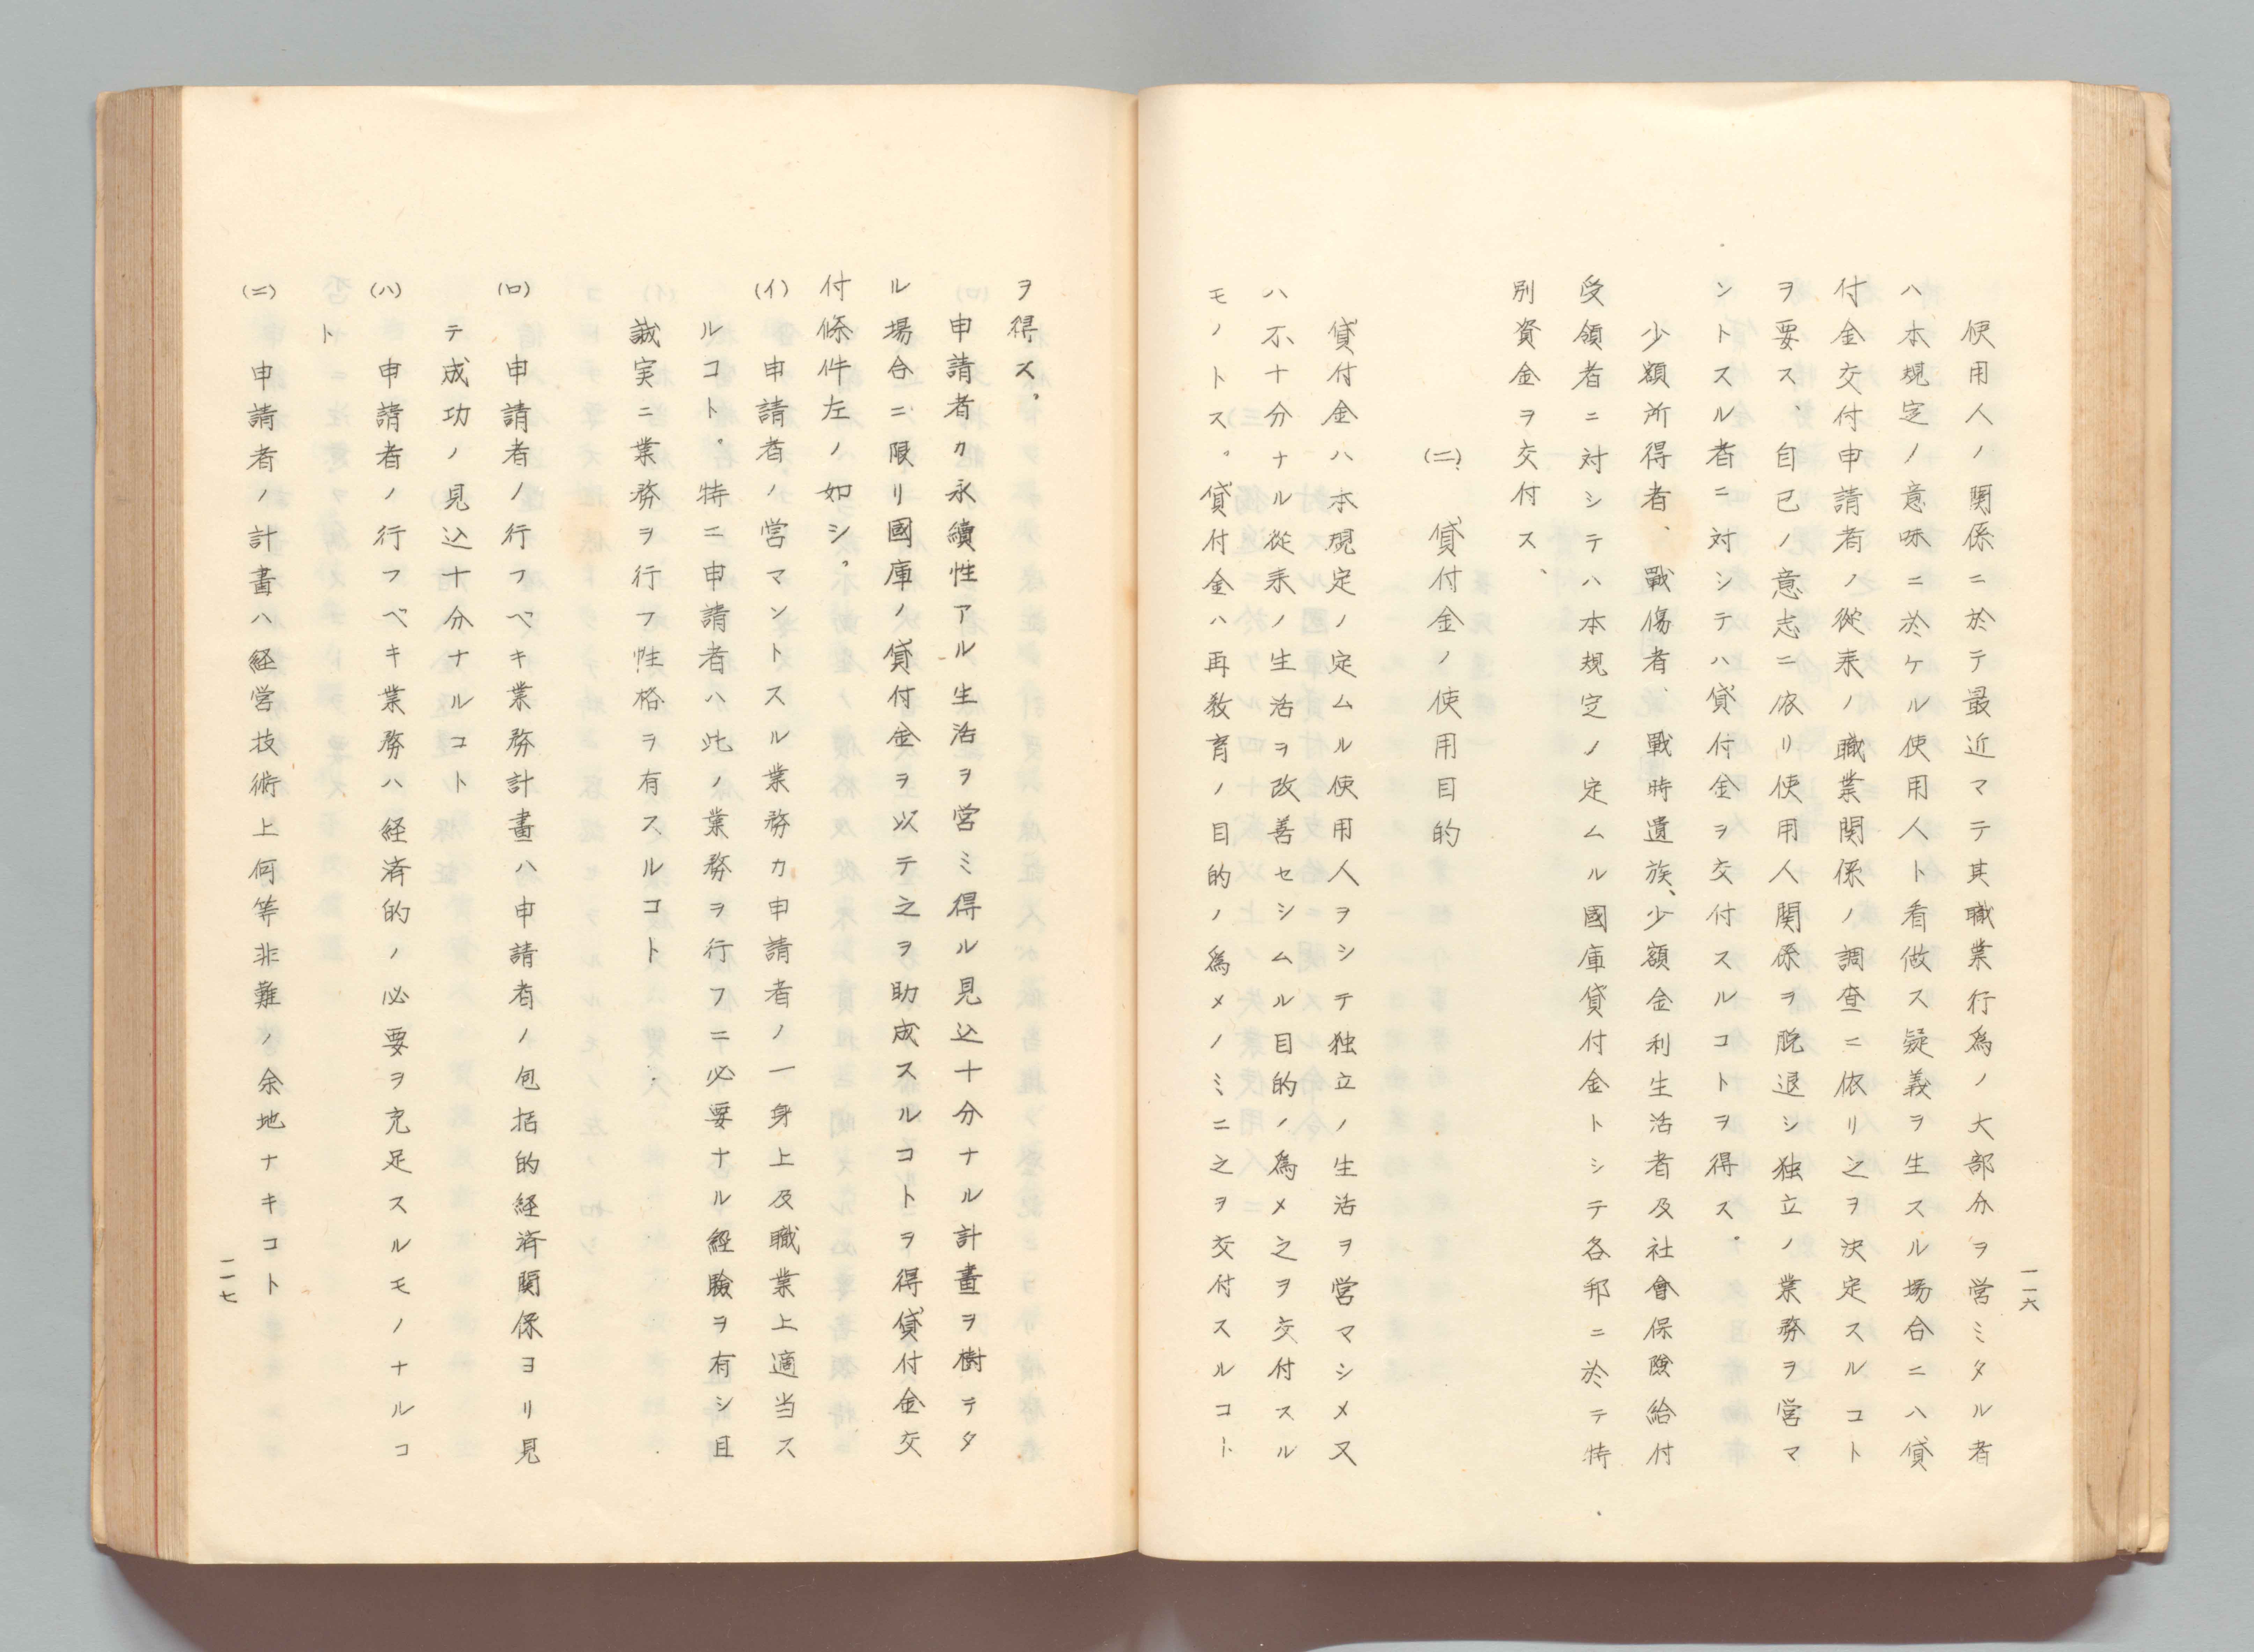 使用人ノ関係ニ於テ最近マテ其職業行為ノ大部分ヲ営ミタル者
ハ本規定ノ意味ニ於ケル使用人ト看做ス疑義ヲ生スル場合ニハ貸
付金交付申請者ノ従来ノ職業関係ノ調査ニ依リ之ヲ決定スルコト
ヲ要ス、自己ノ意志ニ依リ使用人関係ヲ脱退シ独立ノ業務ヲ営マ
ントスル者ニ対シテハ貸付金ヲ交付スルコトヲ得ス。
少額所得者、戰傷者、戰時遺族、少額金利生活者及社會保険給付
受領者ニ対シテハ本規定ノ定ムル國庫貸付金トシテ各邦ニ於テ特
別資金ヲ交付ス、
(二)貸付金ノ使用目的
貸付金ハ本規定ノ定ムル使用人ヲシテ独立ノ生活ヲ営マシメ又
ハ不十分ナル従来ノ生活ヲ改善セシムル目的ノ為メ之ヲ交付スル
モノトス。貸付金ハ再教育ノ目的ノ為メノミニ之ヲ交付スルコト
一一六
ヲ得ス。
申請者カ永續性アル生活ヲ営ミ得ル見込十分ナル計畫ヲ樹テタ
ル場合ニ限リ國庫ノ貸付金ヲ以テ之ヲ助成スルコトヲ得貸付金交
付條件左ノ如シ。
(イ)申請者ノ営マントスル業務カ申請者ノ一身上及職業上適当ス
ルコト。特ニ申請者ハ此ノ業務ヲ行フニ必要ナル経驗ヲ有シ且
誠実ニ業務ヲ行フ性格ヲ有スルコト
(ロ)申請者ノ行フベキ業務計畫ハ申請者ノ包括的経済関係ヨリ見
テ成功ノ見込十分ナルコト
(ハ)申請者ノ行フベキ業務ハ経済的ノ必要ヲ充足スルモノナルコ
ト
(ニ)申請者ノ計畫ハ経営技術上何等非難ノ余地ナキコト
一一七